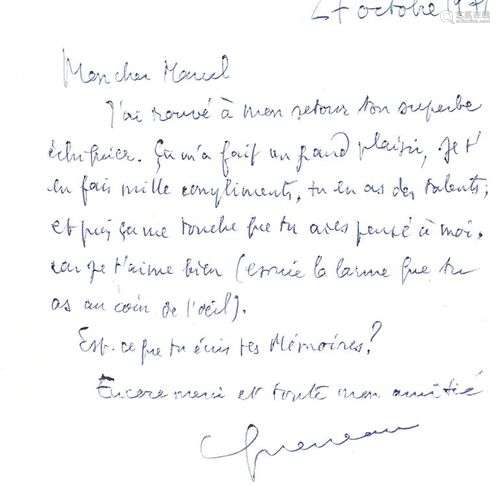 27 octobre 1971
Mon cher Marcel
J'ai trouvé à mon retour ton superbe
échiquier. Ça m'a fait un grand plaisir, je t'
en fais mille compliments, tu en as des talents;
et puis ça me touche que tu aies pensé à moi,
car je t'aime bien (essuie la larme que tu
as au coin de l'œil).
Est-ce que tu écris tes Mémoires?
Encore merci et toute mon amitié